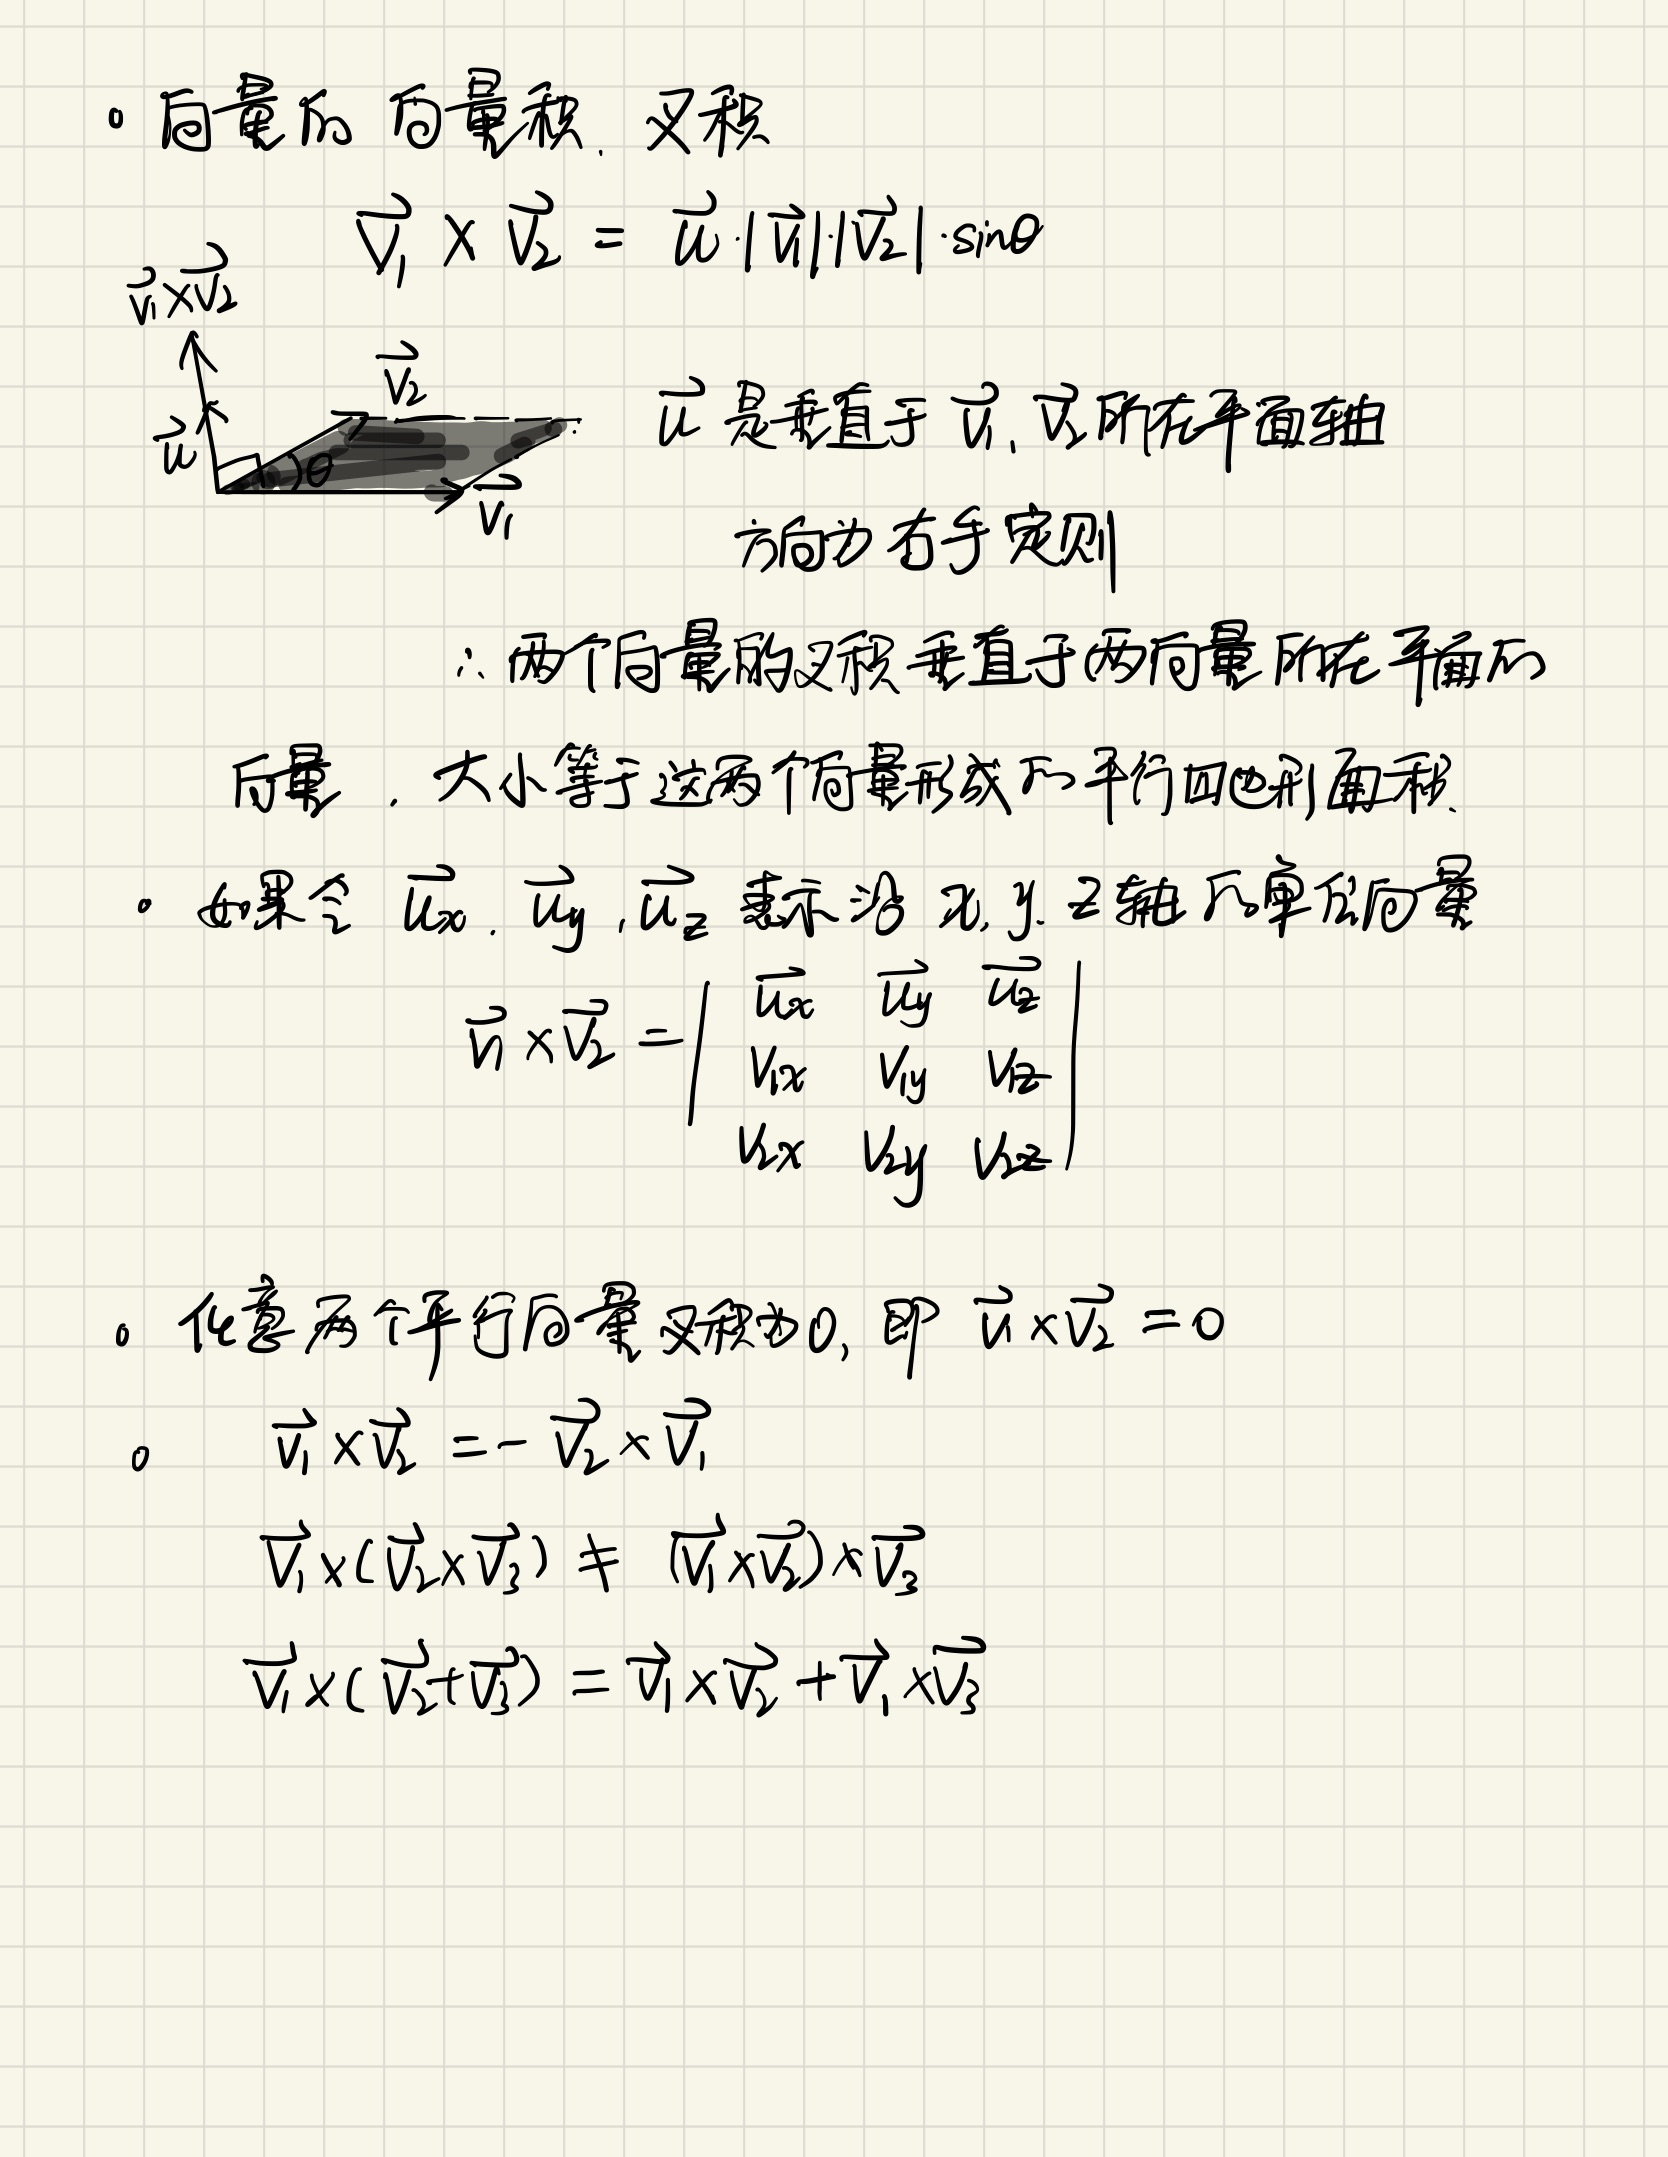 。向量的 向量积. 叉积
V₁ × V₂ = u·|V₁|·|V₂|·sinθ
V₁×V₂
V₂
u
θ
V₁
u 是垂直于 V₁, V₂ 所在平面轴
方向为右手定则
∴ 两个向量的叉积垂直于两向量所在平面的
向量, 大小等于这两个向量形成的平行四边形面积.
。如果令 ux, uy, uz 表示沿 x, y, z轴的单位向量
V₁×V₂ = | ux uy uz |
V1x V1y V1z
V2x V2y V2z
。任意两个平行向量叉积为0, 即 V₁×V₂ = 0
。V₁×V₂ = - V₂×V₁
V₁×(V₂×V₃) ≠ (V₁×V₂)×V₃
V₁×(V₂+V₃) = V₁×V₂ + V₁×V₃